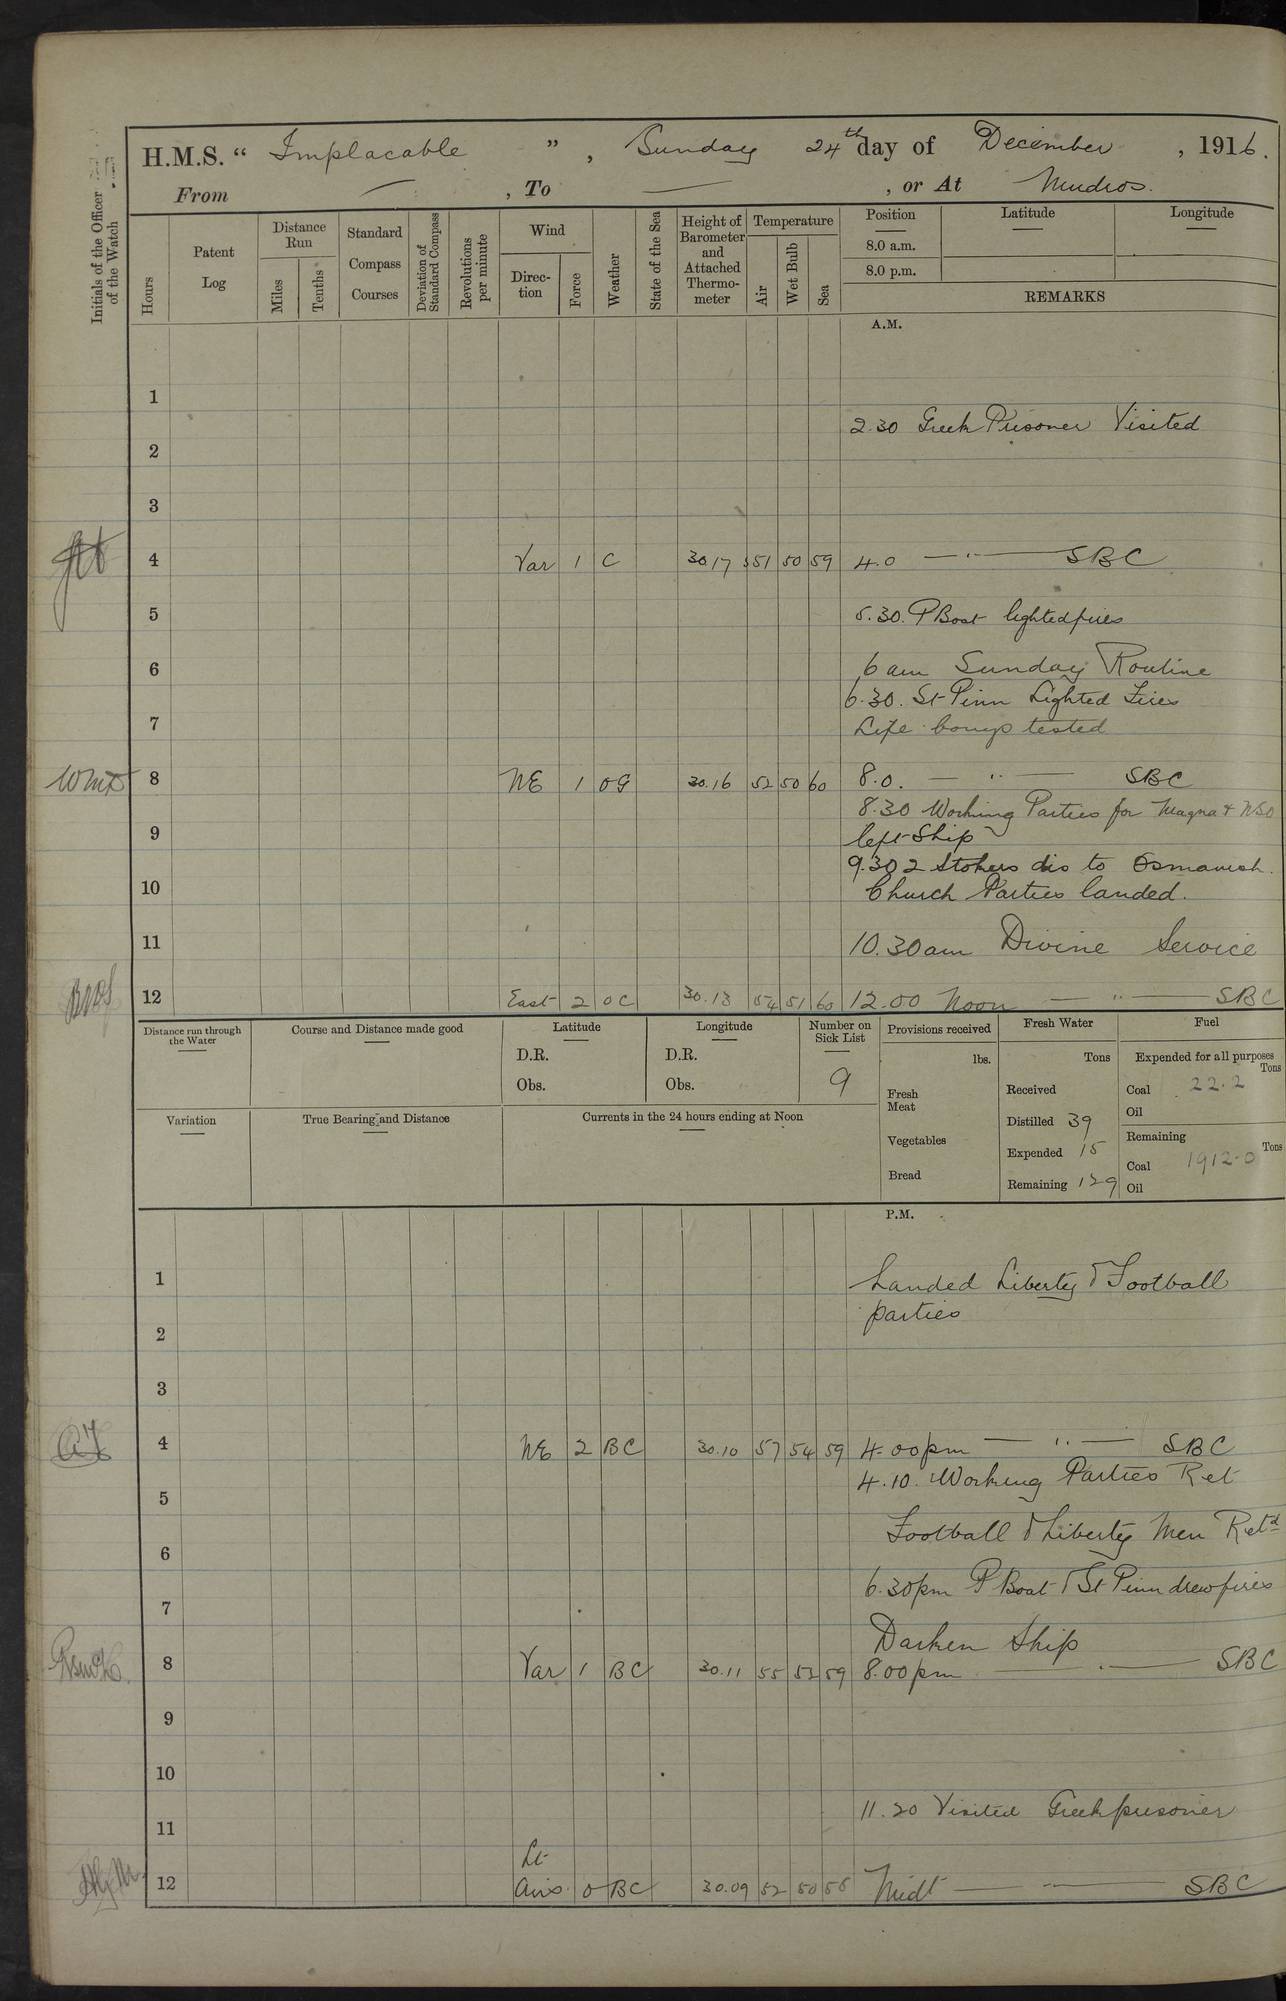 H.M.S. “ Implacable ” , Sunday 24th day of December , 1916.
From — , To — , or At Mudros.
Initials of the Officer of the Watch
Hours
Patent Log
Distance Run
Miles
Tenths
Standard Compass Courses
Deviation of Standard Compass
Revolutions per minute
Wind
Direction
Force
Weather
State of the Sea
Height of Barometer and Attached Thermometer
Temperature
Air
Wet Bulb
Sea
Position
8.0 a.m.
8.0 p.m.
Latitude
Longitude
REMARKS
A.M.
1
2.30 Greek Prisoner Visited
2
3
4 Var 1 C 30.17 51 50 59 4.0 — " — SBC
5 5.30. P Boat lighted fires
6 6 am Sunday Routine
6.30. St Pinn Lighted Fires
7 Life buoys tested
8 NE 1 OG 30.16 52 50 60 8.0. — " — SBC
8.30 Working Parties for Magna & NSO
9 left Ship
9.30 2 Stokers dis to Osmanieh.
10 Church Parties landed.
11 10.30am Divine Service
12 East 2 OC 30.13 54 51 60 12.00 Noon — " — SBC
Distance run through the Water
Course and Distance made good
Latitude
D.R.
Obs.
Longitude
D.R.
Obs.
Number on Sick List
9
Variation
True Bearing and Distance
Currents in the 24 hours ending at Noon
Provisions received
lbs.
Fresh Meat
Vegetables
Bread
Fresh Water
Tons
Received
Distilled 39
Expended 15
Remaining 129
Fuel
Expended for all purposes
Tons
Coal 22.2
Oil
Remaining
Tons
Coal 1912.0
Oil
P.M.
1 Landed Liberty & Football
2 parties
3
4 NE 2 BC 30.10 57 54 59 4.00pm — " — SBC
4.10. Working Parties Ret
5
Football & Liberty Men Retd
6
6.30pm P Boat & St Pinn drew fires
7
Darken Ship
8 Var 1 BC 30.11 55 53 59 8.00pm — " — SBC
9
10
11.20 Visited Greek prisoner
11
12 Lt Airs 0 BC 30.09 52 50 58 Midt — " — SBC